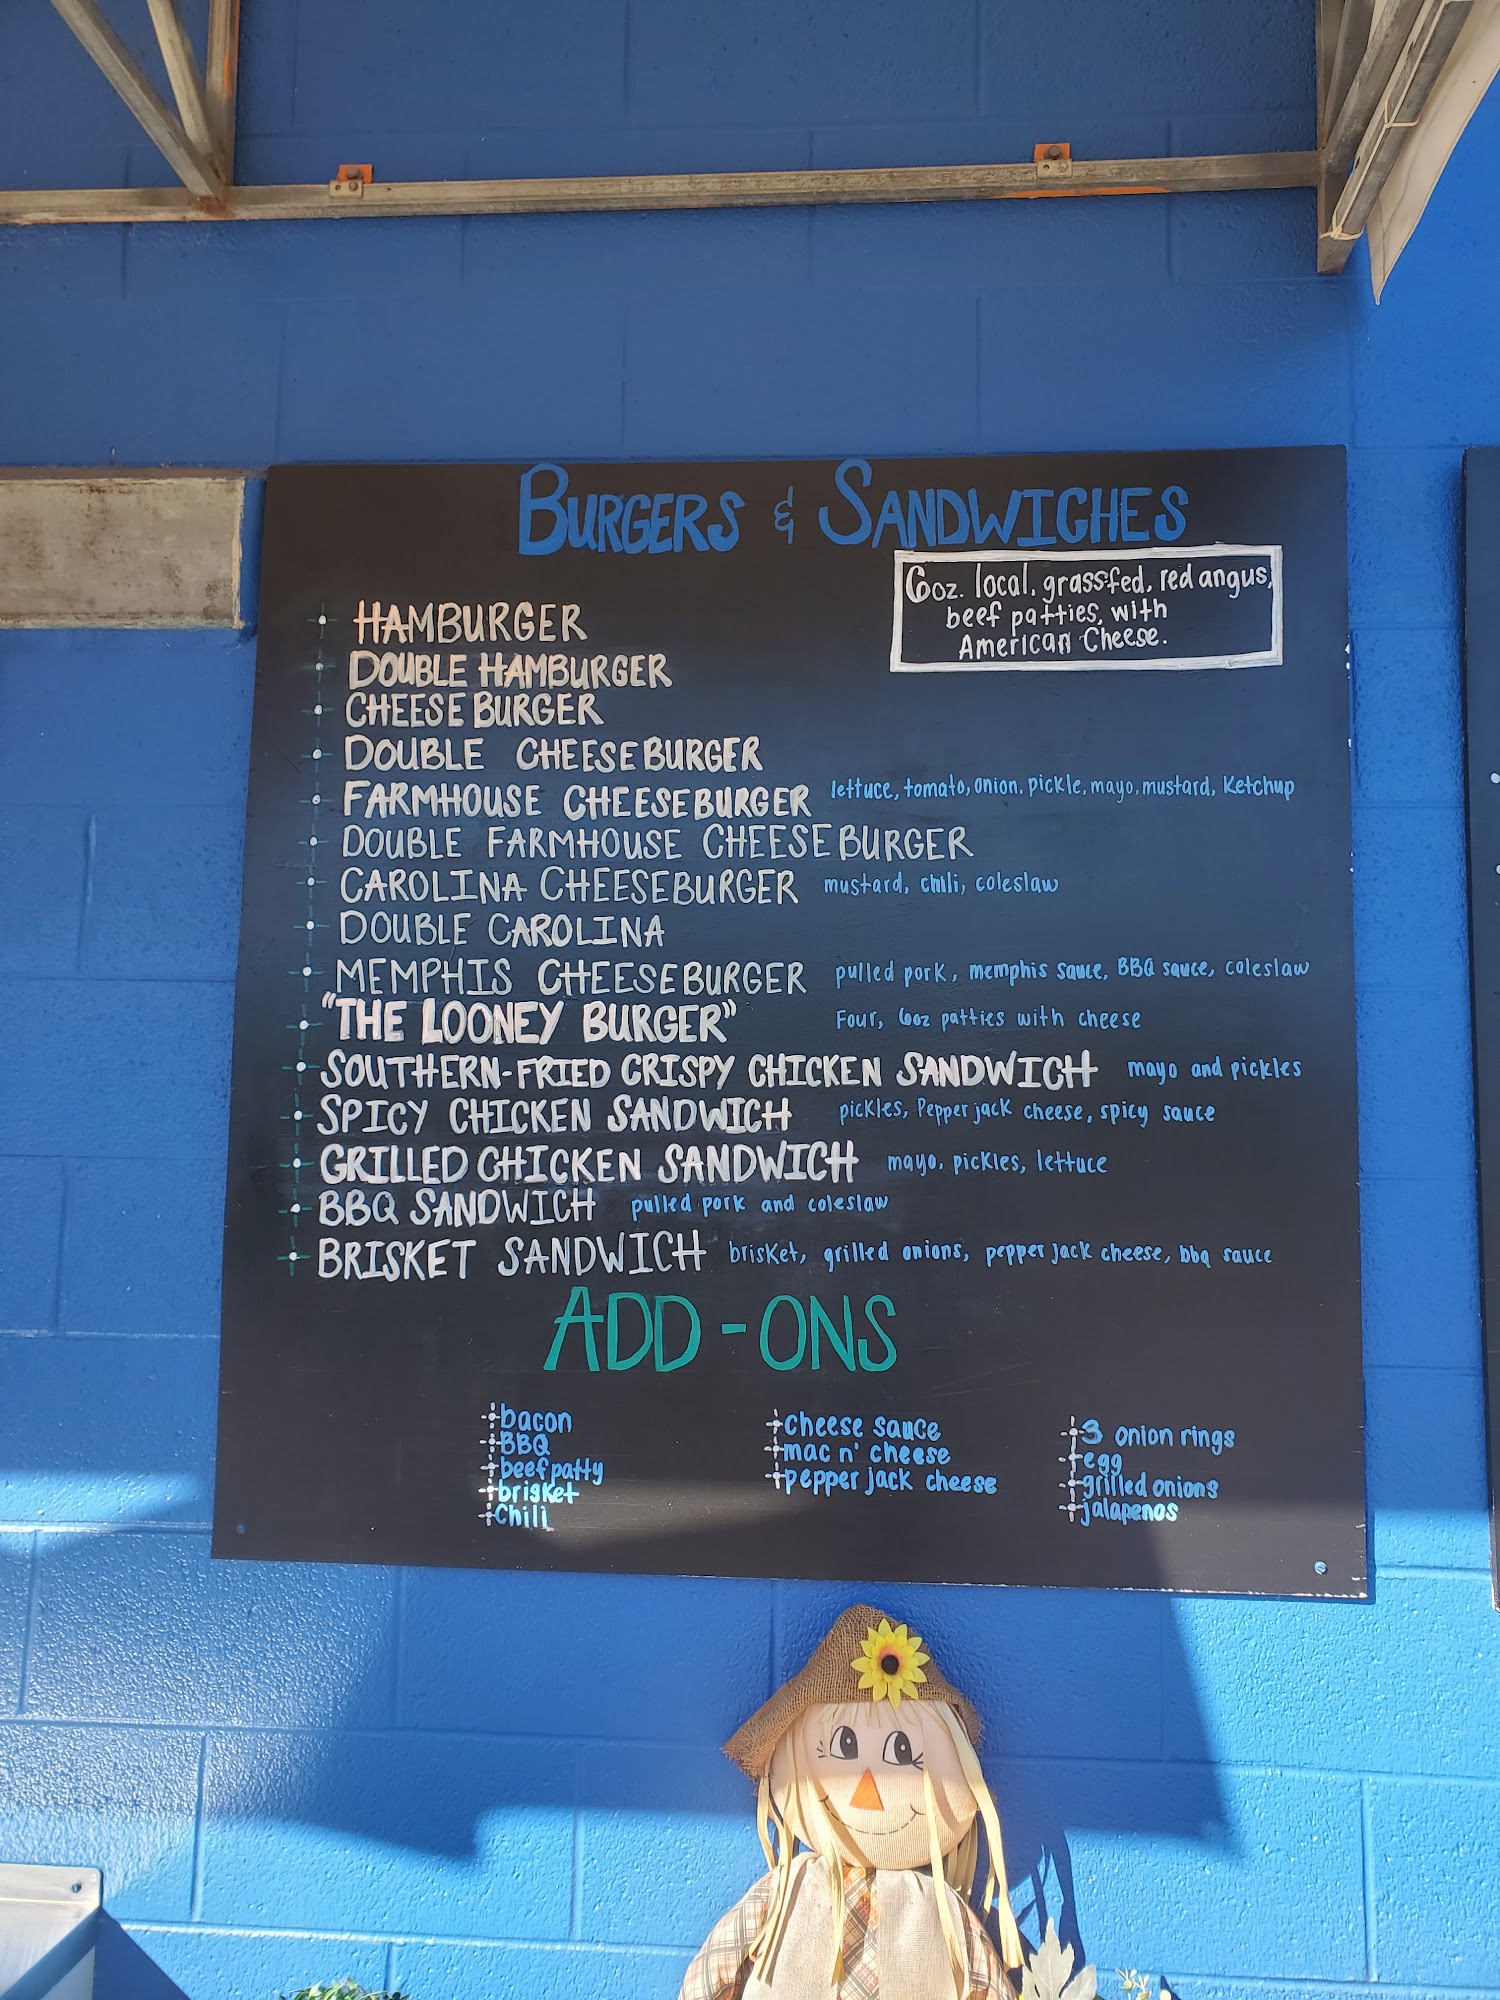 BURGERS & SANDWICHES
6oz. local, grassfed, red angus,
beef patties, with
American Cheese.
HAMBURGER
DOUBLE HAMBURGER
CHEESEBURGER
DOUBLE CHEESEBURGER
FARMHOUSE CHEESEBURGER lettuce, tomato, onion, pickle, mayo, mustard, Ketchup
DOUBLE FARMHOUSE CHEESEBURGER
CAROLINA CHEESEBURGER mustard, chili, coleslaw
DOUBLE CAROLINA
MEMPHIS CHEESEBURGER pulled pork, memphis sauce, BBQ sauce, coleslaw
"THE LOONEY BURGER" Four, 6oz patties with cheese
SOUTHERN-FRIED CRISPY CHICKEN SANDWICH mayo and pickles
SPICY CHICKEN SANDWICH pickles, Pepper jack cheese, spicy sauce
GRILLED CHICKEN SANDWICH mayo, pickles, lettuce
BBQ SANDWICH pulled pork and coleslaw
BRISKET SANDWICH brisket, grilled onions, pepper jack cheese, bbq sauce
ADD-ONS
bacon
BBQ
beef patty
brisket
Chili
cheese sauce
mac n' cheese
pepper jack cheese
3 onion rings
egg
grilled onions
jalapenos